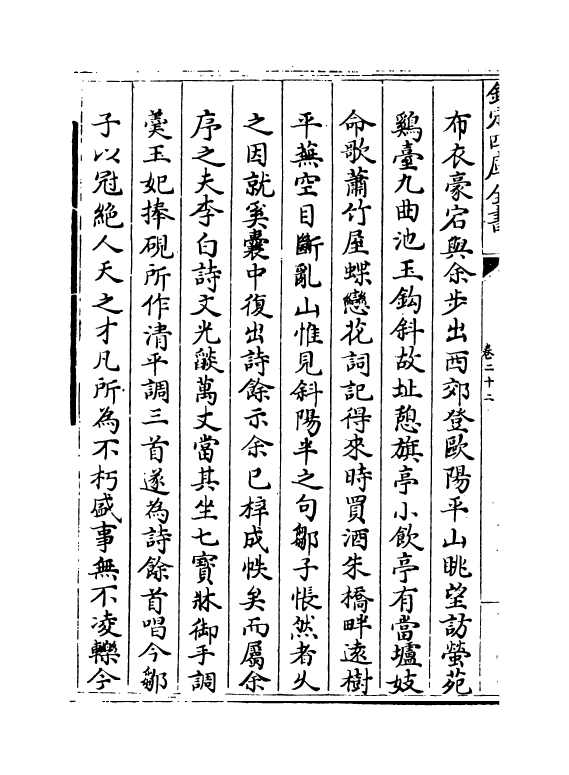 欽定四庫全書
卷二十二
布衣豪宕與余步出西郊登歐陽平山眺望訪螢苑
鷄臺九曲池玉鈎斜故址憩旗亭小飲亭有當壚妓
命歌蕭竹屋蝶戀花詞記得來時買酒朱橋畔遠樹
平蕪空目斷亂山惟見斜陽半之句鄒子悵然者久
之因就奚囊中復出詩餘示余已梓成帙矣而屬余
序之夫李白詩文光燄萬丈當其坐七寳牀御手調
羹玉妃捧硯所作清平調三首遂為詩餘首唱今鄒
子以冠絕人天之才凡所為不朽盛事無不凌轢今